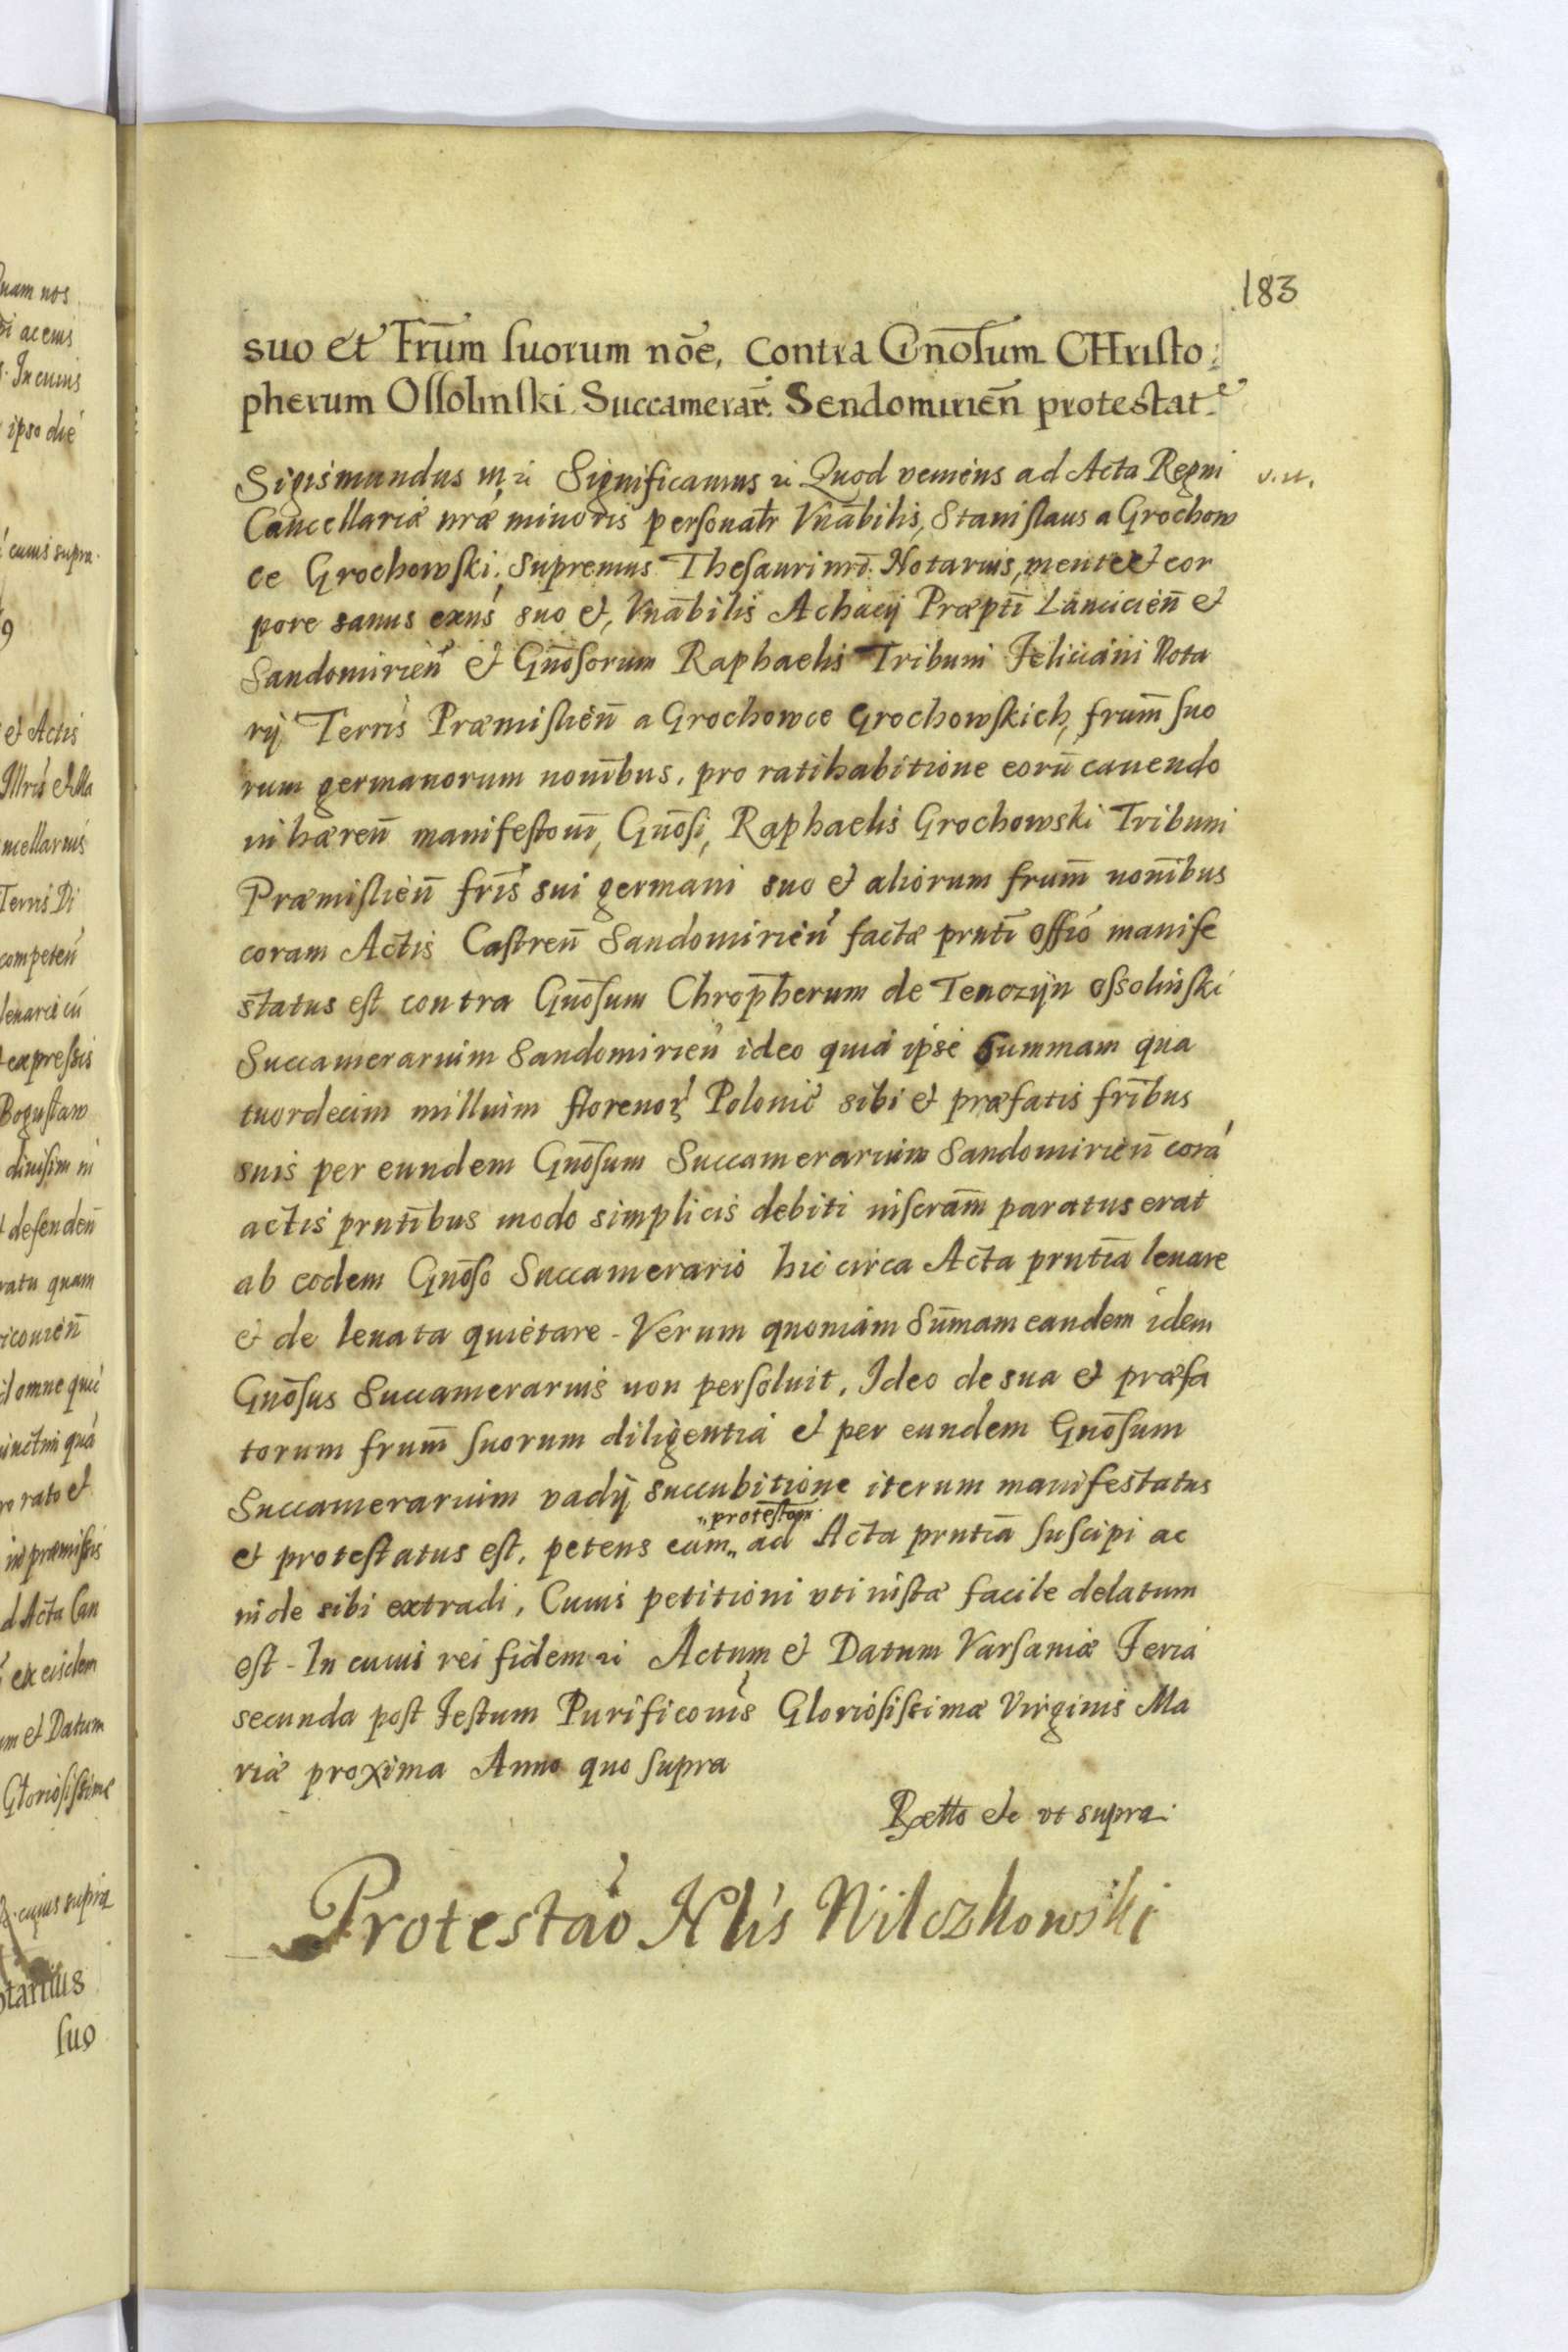 183
suo et Frum̄ suorum nōe, contra Gnōsum CHristo:
pherum Ossolinski Succamerar̄: Sendomirien̄ protestat.
Sigismundus III ꝛc Significamus ꝛc Quod veniens ad Acta Regni v. u.
Cancellariæ nr̄æ minoris personalr̄ Vnābilis, Stanislaus a Grochow
ce Grochowski. Supremus Thesauri nrī. Notarius, mente et cor
pore sanus exn̄s suo et, Vnābilis Achacij Præptī Lancicien̄ et
Sandomirien̄ et Gnōsorum Raphaelis Tribuni Feliciani Nota
rij Terris Præmislien̄ a Grochowce Grochowskich, frum̄ suo
rum germanorum nonībus, pro ratihabitione eorū cauendo
inhæren̄ manifestonī, Gnōsi, Raphaelis Grochowski Tribuni
Præmislien̄ frīs sui germani suo et aliorum frum̄ nonībus
coram Actis Castren̄ Sandomirien̄ factæ prntī offīo manife
status est contra Gnōsum Chrop̄herum de Tenczijn Ossolinski
Succamerarium Sandomirien̄ ideo quia ipse Summam qua
tuordecim millium florenoꝝ Polonic̄ sibi et præfatis frībus
suis per eundem Gnōsum Succamerarium Sandomirien̄ corā
actis prntībus modo simplicis debiti inscram̄ paratus erat
ab eodem Gnōso Succamerario hic circa Acta prntīa leuare
et de leuata quietare. Verum quoniam Sum̄am eandem idem
Gnōsus Succamerarius non persoluit, Ideo de sua et præfa
torum frum̄ suorum diligentia et per eundem Gnōsum
Succamerarium vadij succubitione iterum manifestatus
et protestatus est, petens eam „protestoēm„ ad Acta prntīa suscipi ac
inde sibi extradi, Cuius petitioni vti iustæ facile delatum
est. In cuius rei fidem ꝛc Actum et Datum Varsauiæ Feria
secunda post Festum Purificonīs Gloriosissimæ Virginis Ma
riæ proxima Anno quo supra
Rætto etc vt supra.
Protestaō Nlīs Wilczkowski